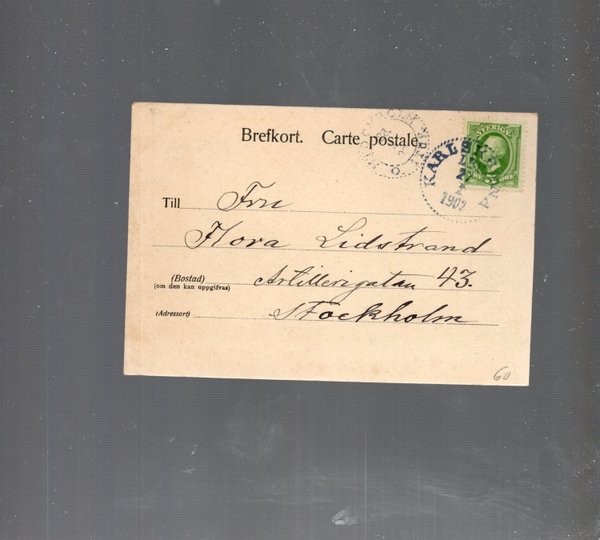 Brefkort. Carte postale.
SVERIGE
5 ÖRE
1902
Till Fru
Flora Lidstrand
(Bostad) Artillerigatan 43.
(om den kan uppgifvas)
(Adressort) Stockholm
60